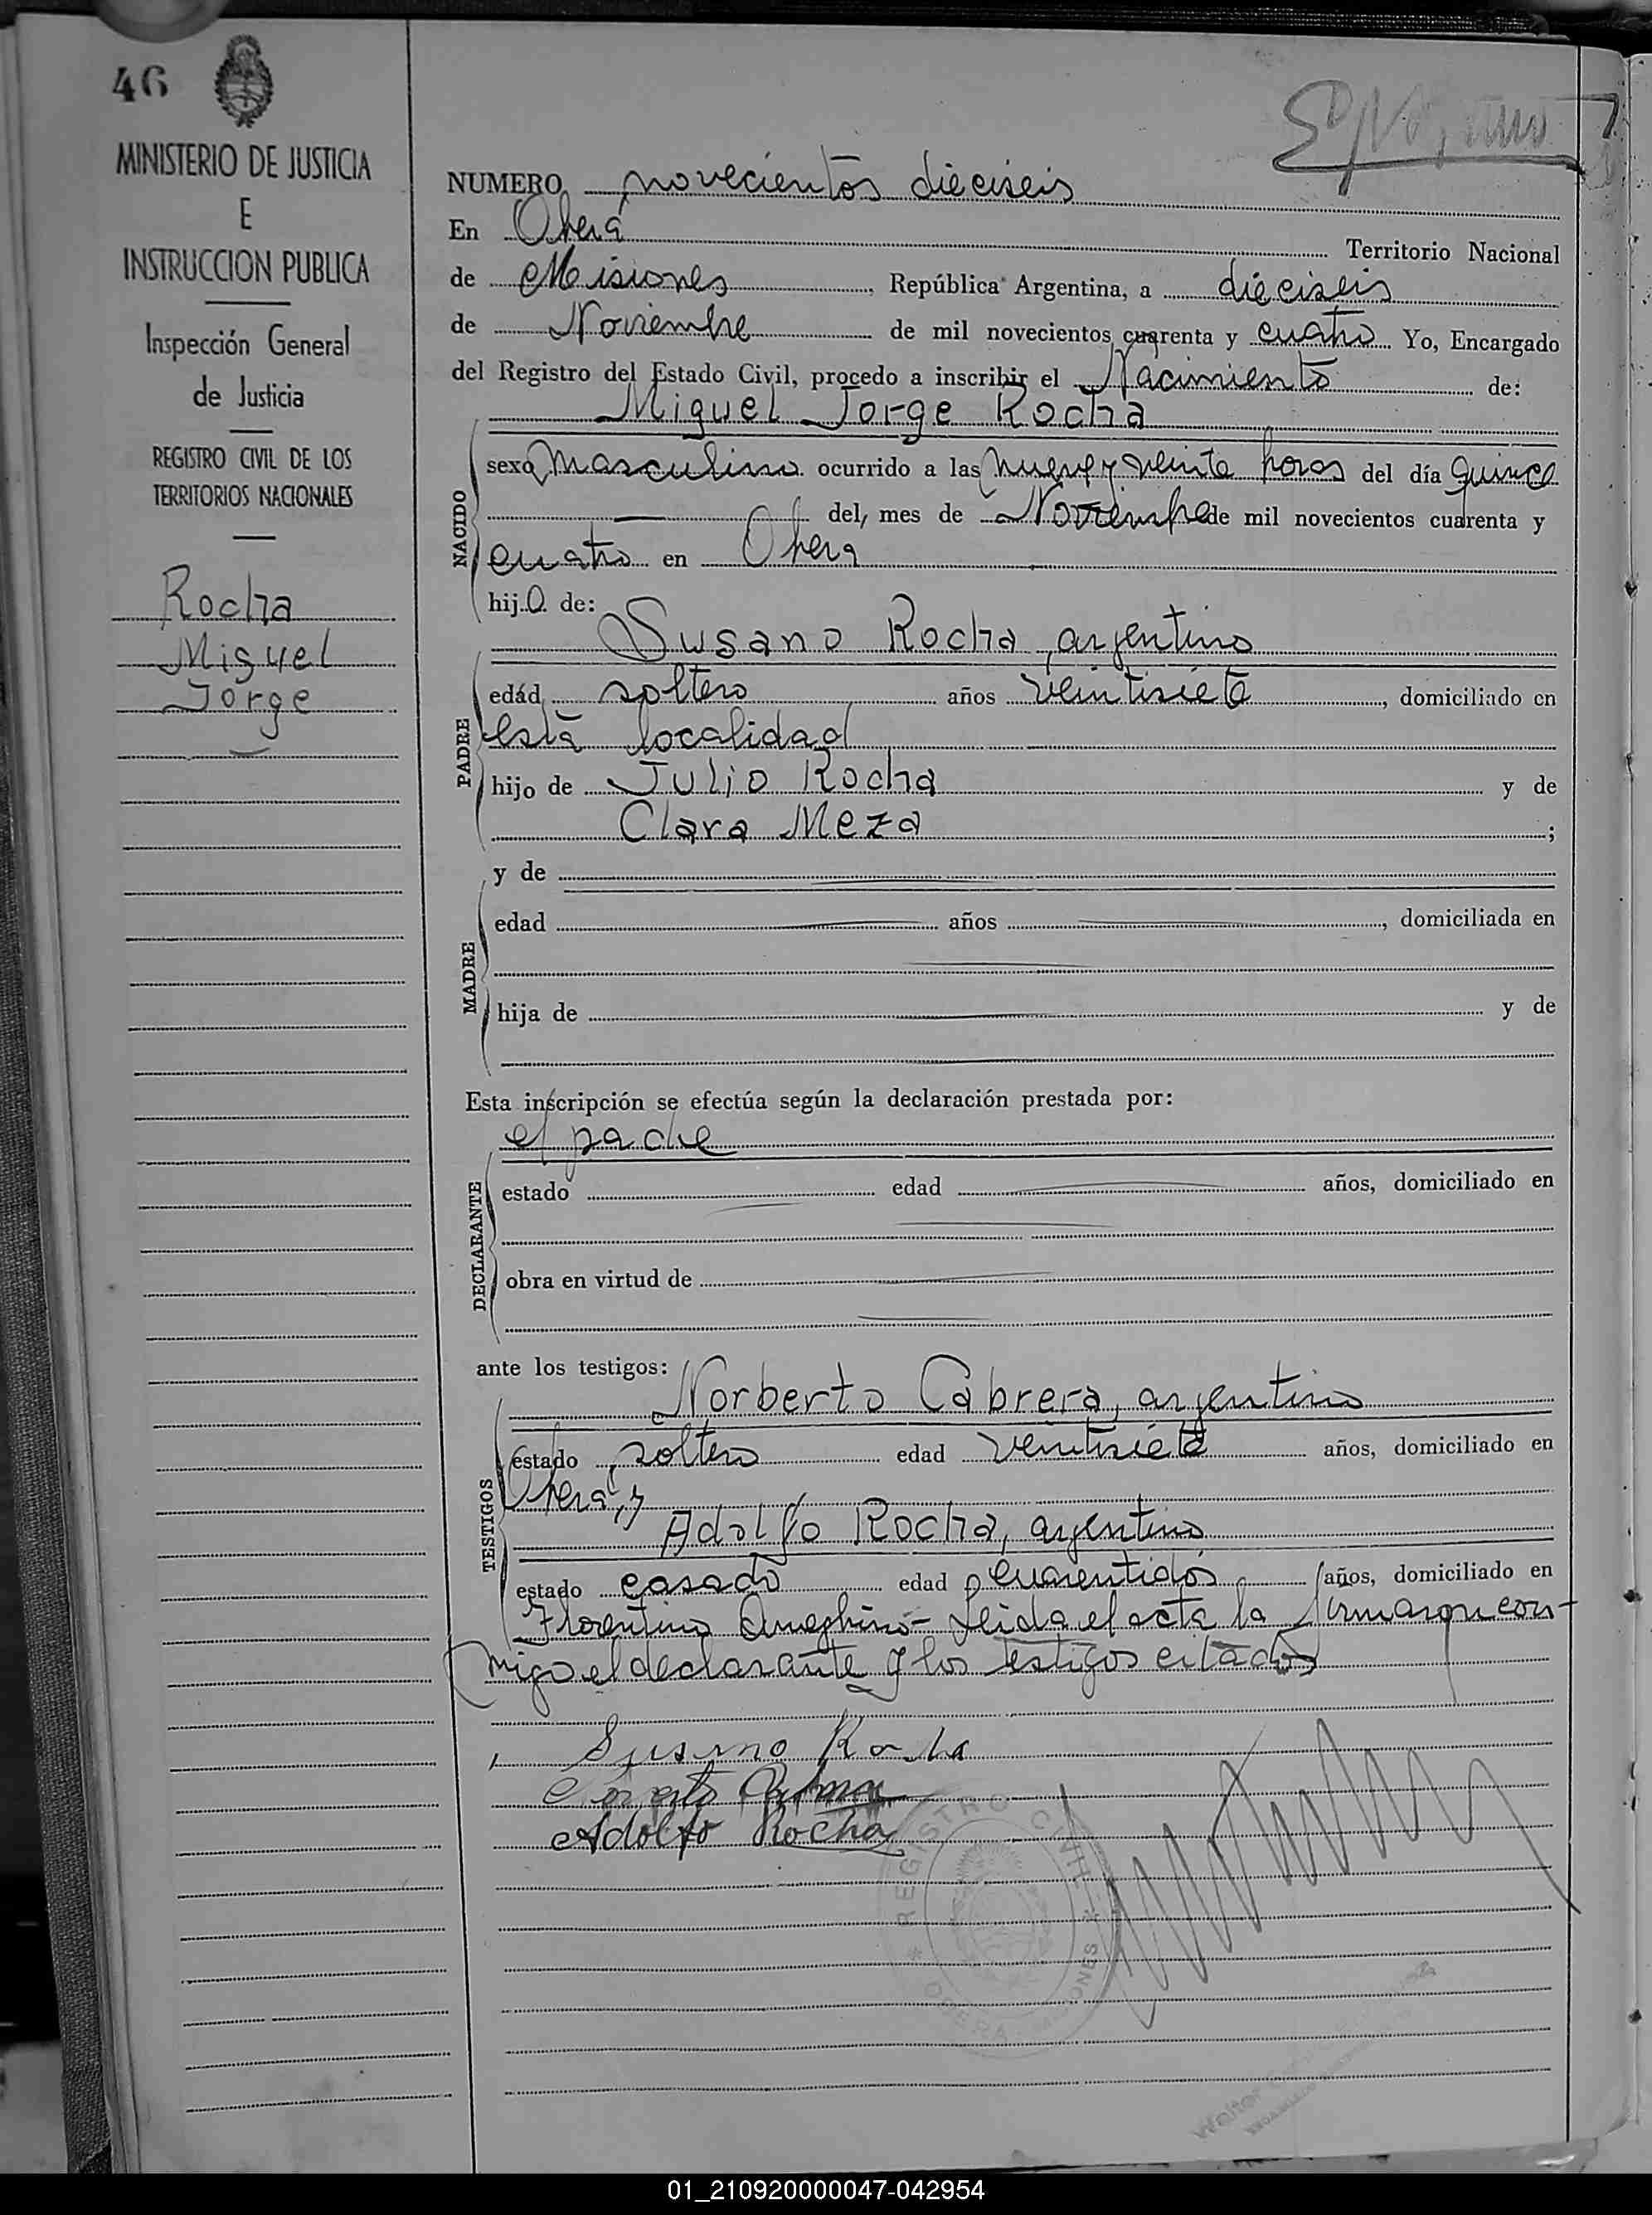 46
MINISTERIO DE JUSTICIA
E
INSTRUCCION PUBLICA
Inspección General
de Justicia
REGISTRO CIVIL DE LOS
TERRITORIOS NACIONALES
Rocha
Miguel
Jorge
NUMERO novecientos dieciseis
En Oberá Territorio Nacional
de Misiones, República Argentina, a dieciseis
de Noviembre de mil novecientos cuarenta y cuatro Yo, Encargado
del Registro del Estado Civil, procedo a inscribir el Nacimiento de:
Miguel Jorge Rocha
NACIDO
sexo Masculino ocurrido a las nueve y veinte horas del día quince
del mes de Noviembre de mil novecientos cuarenta y
cuatro en Obera
hijo de:
Susano Rocha, argentino
PADRE
edad soltero años veintisiete, domiciliado en
esta localidad
hijo de Julio Rocha y de
Clara Meza;
y de
MADRE
edad años, domiciliada en
hija de y de
Esta inscripción se efectúa según la declaración prestada por:
el padre
DECLARANTE
estado edad años, domiciliado en
obra en virtud de
ante los testigos:
Norberto Cabrera, argentino
TESTIGOS
estado soltero edad veintisiete años, domiciliado en
Oberá, y
Adolfo Rocha, argentino
estado casado edad cuarentidos años, domiciliado en
Florentino Ameghino - Leida el acta la firmaron con-
migo el declarante y los testigos citados
Susano Rocha
Adolfo Rocha
REGISTRO CIVIL
OBERA MISIONES
01_210920000047-042954